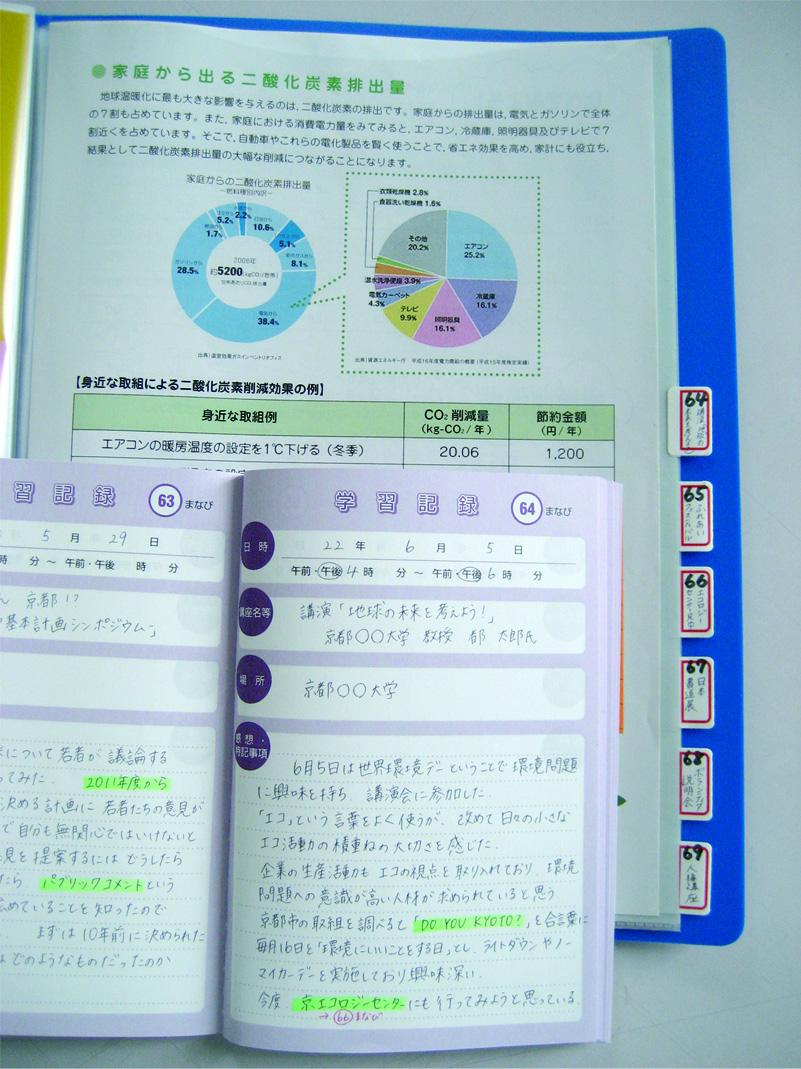 家庭から出る二酸化炭素排出量
地球温暖化に最も大きな影響を与えるのは，二酸化炭素の排出です。家庭からの排出量は，電気とガソリンで全体
の7割も占めています。また，家庭における消費電力量をみてみると，エアコン，冷蔵庫，照明器具及びテレビで7
割近くを占めています。そこで，自動車やこれらの電化製品を賢く使うことで，省エネ効果を高め，家計にも役立ち，
結果として二酸化炭素排出量の大幅な削減につながることになります。
家庭からの二酸化炭素排出量
－燃料種別内訳－
5.2%
2.2%
10.6%
1.7%
5.1%
8.1%
ガソリンから
28.5%
2006年
約5200(kgCO₂/世帯)
電気から
38.4%
出典）温室効果ガスインベントリオフィス
衣類乾燥機 2.8%
食器洗い乾燥機 1.6%
その他
20.2%
エアコン
25.2%
温水洗浄便座 3.9%
電気カーペット
4.3%
冷蔵庫
16.1%
テレビ
9.9%
照明器具
16.1%
出典）資源エネルギー庁 平成16年度電力需給の概要（平成15年度推定実績）
【身近な取組による二酸化炭素削減効果の例】
身近な取組例 CO₂ 削減量 節約金額
(kg-CO₂/年) (円/年)
エアコンの暖房温度の設定を1℃下げる（冬季） 20.06 1,200
習記録 63 まなび
5月29日
時 分 ～ 午前・午後 時 分
京都!?
基本計画シンポジウム」
について若者が議論する
ってみた． 2011年度から
決める計画に若者たちの意見が
で自分も無関心ではいけないと
見を提案するにはどうしたら
たら パブリックコメントという
めていることを知ったので
まずは10年前に決められた
どのようなものだったのか
学習記録 64 まなび
日時 22年6月5日
午前・午後 4時 分 ～ 午前・午後 6時 分
講座名等 講演「地球の未来を考えよう！」
京都○○大学 教授 都 太郎氏
場所 京都○○大学
感想・
特記事項
6月5日は世界環境デーということで環境問題
に興味を持ち、講演会に参加した．
「エコ」という言葉をよく使うが、改めて日々の小さな
エコ活動の積重ねの大切さを感じた．
企業の生産活動もエコの視点を取り入れており、環境
問題への意識が高い人材が求められていると思う
京都市の取組を調べると「DO YOU KYOTO?」を合言葉に
毎月16日を「環境にいいことをする日」とし、ライトダウンやノー
マイカーデーを実施しており興味深い．
今度、京エコロジーセンターにも行ってみようと思っている．
→66まなび
64
65 ふれあい
66 エコロジー
センター見学
67 日本
書道展
68 ボランティア
説明会
69 人権講座